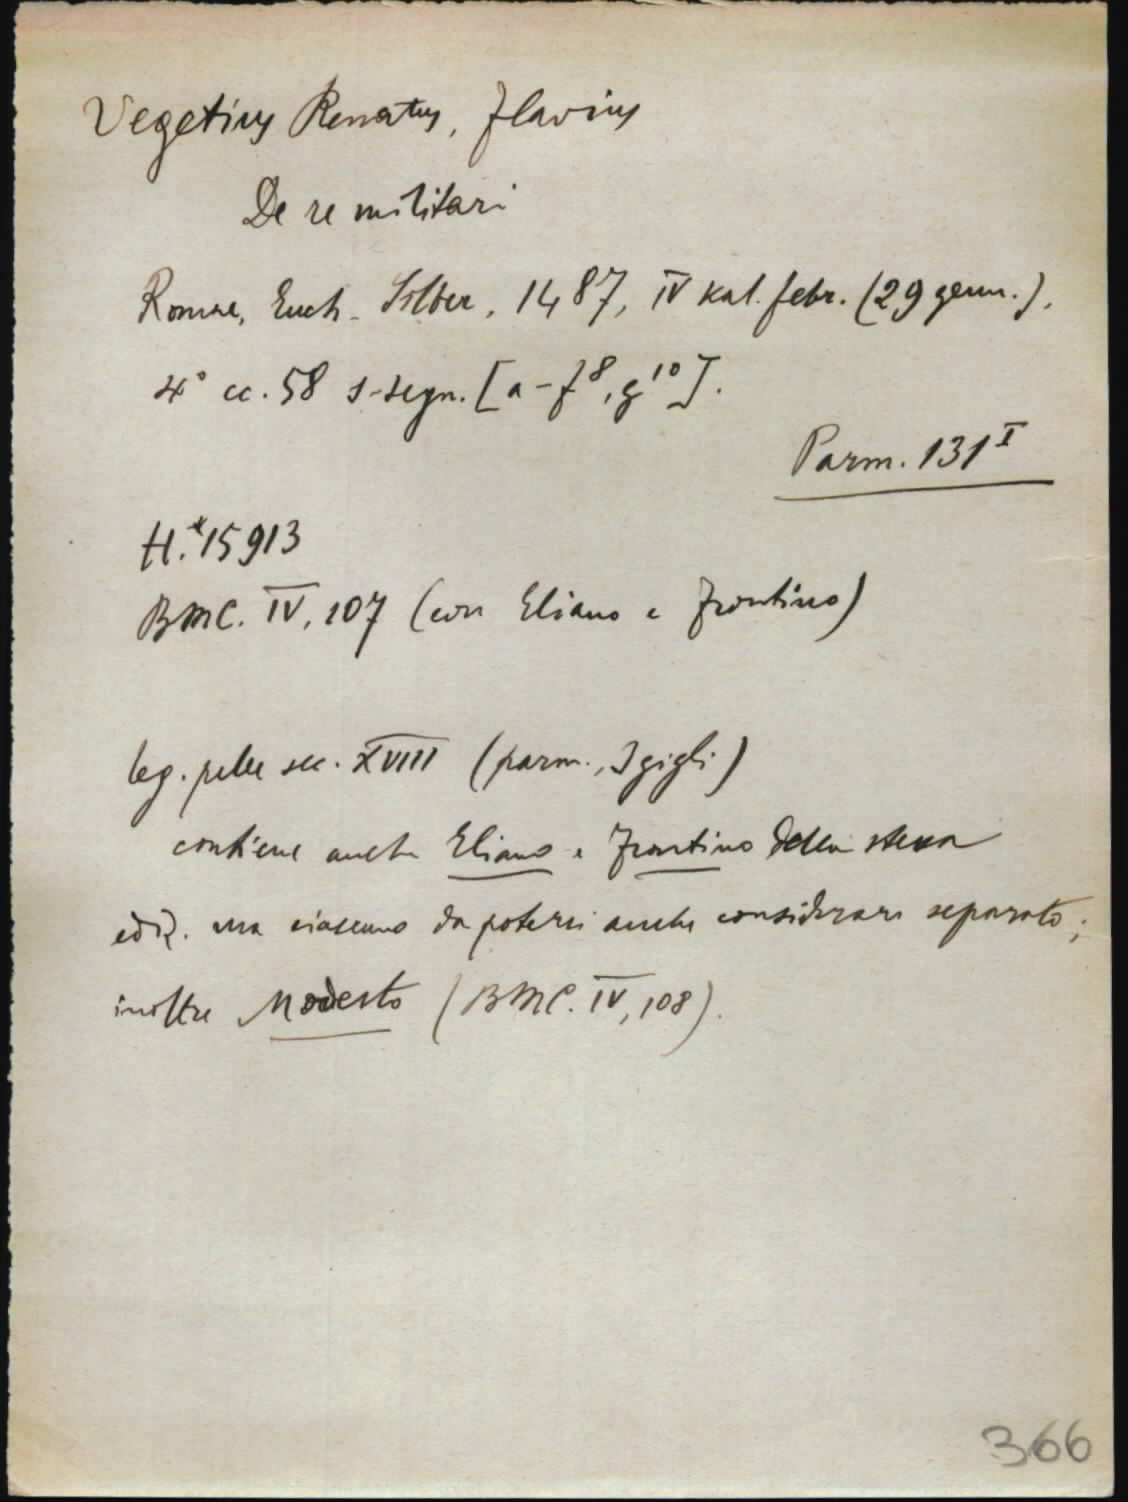 Vegetius Renatus, Flavius
De re militari
Romae, Euch. Silber, 1487, IV kal. febr. (29 genn.).
4° cc. 58 s-segn. [a-f⁸, g¹⁰].
Parm. 131ᴵ
H.*15913
BMC. IV, 107 (con Eliano e Frontino)
leg. pelle sec. XVIII (parm., 3 gigli)
contiene anche Eliano e Frontino della stessa
ediz. ma ciascuno da potersi anche considerare separato;
inoltre Modesto (BMC. IV, 108).
366